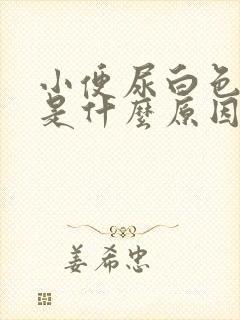 小便尿白色
是什麼原因
姜希忠